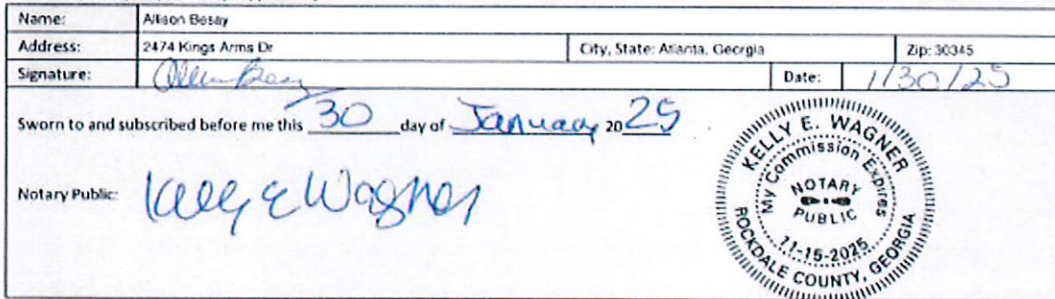 Name: Allison Besay
Address: 2474 Kings Arms Dr City, State: Atlanta, Georgia Zip: 30345
Signature: Date: 1/30/25
Sworn to and subscribed before me this 30 day of January 2025
Notary Public: Kelly E Wagner
KELLY E. WAGNER
My Commission Expires
NOTARY
PUBLIC
11-15-2025
ROCKDALE COUNTY, GEORGIA